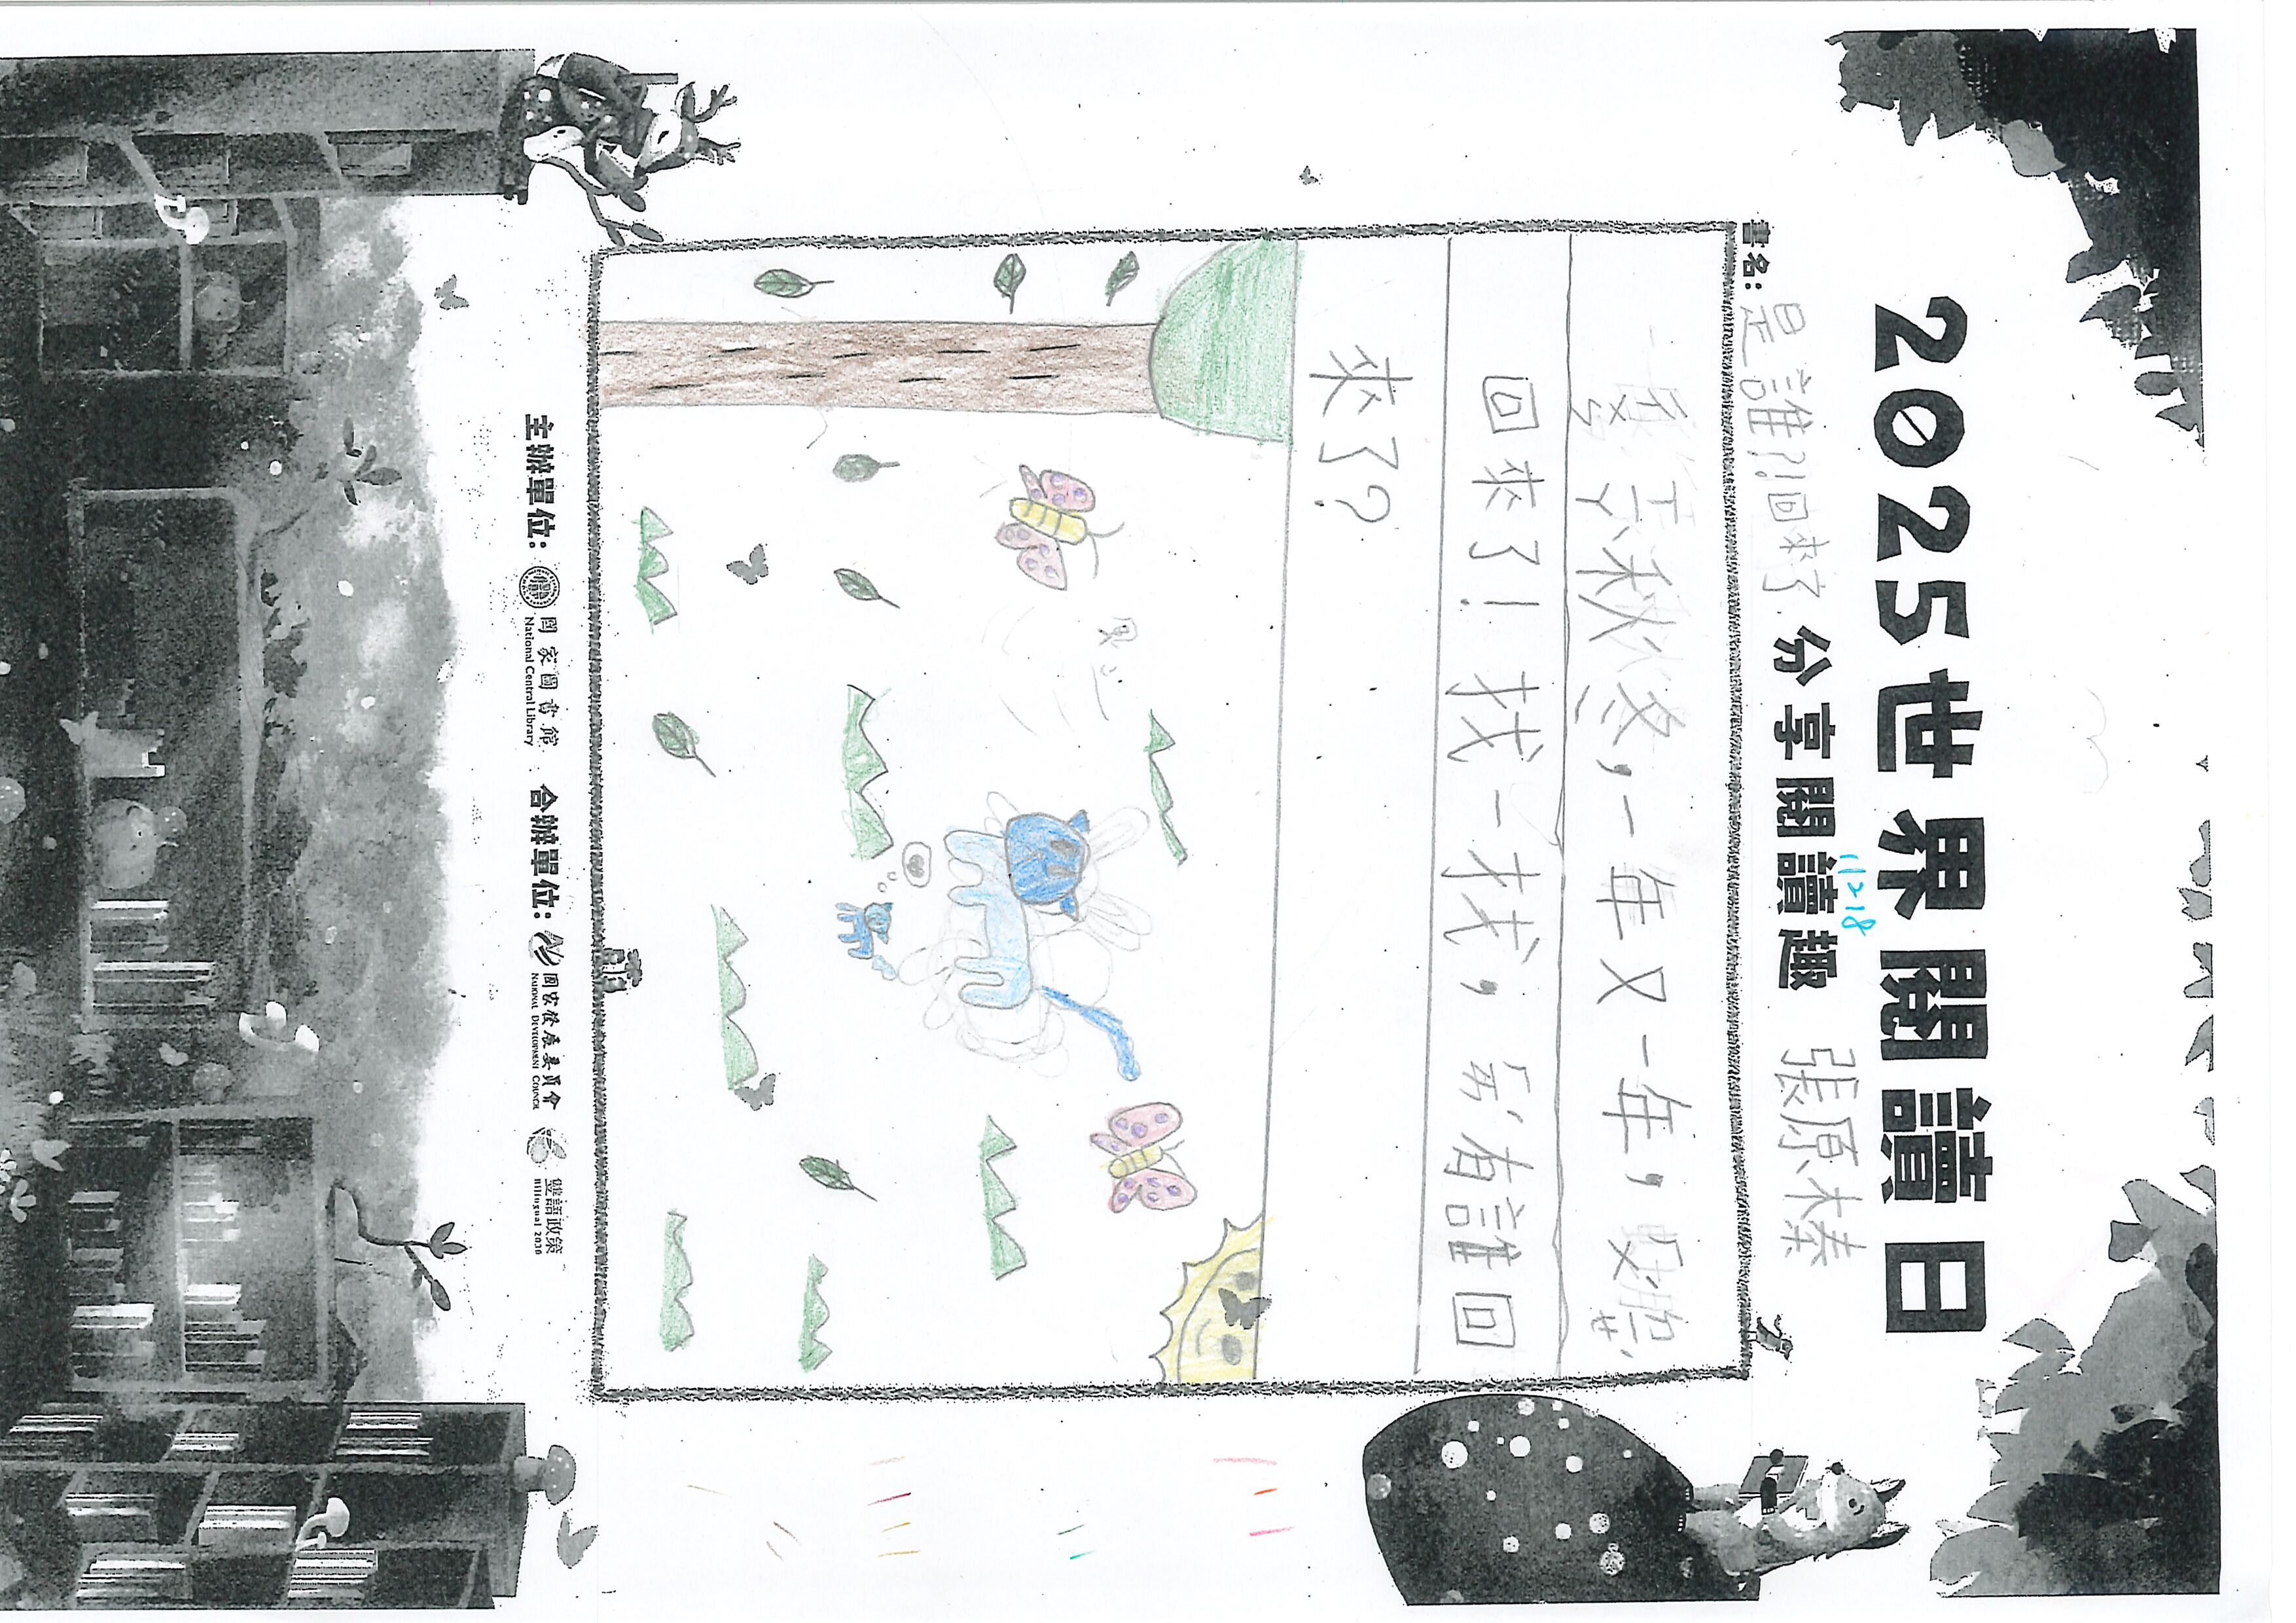 2025世界閱讀日
書名：是誰?!回來了. 分享閱讀趣 張原榛
11218
秋冬，一年又一年，
回來了！找一找，ㄏㄞˊ有誰回
來了？
主辦單位： 國家圖書館 合辦單位： 國家發展委員會 雙語政策
National Central Library NATIONAL DEVELOPMENT COUNCIL Bilingual 2030